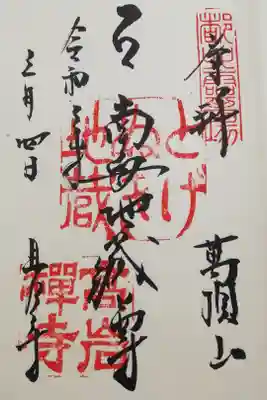 奉拝
萬頂山
南無地蔵尊
令和三年
三月四日
高岩寺
とげぬき地蔵
高岩禅寺